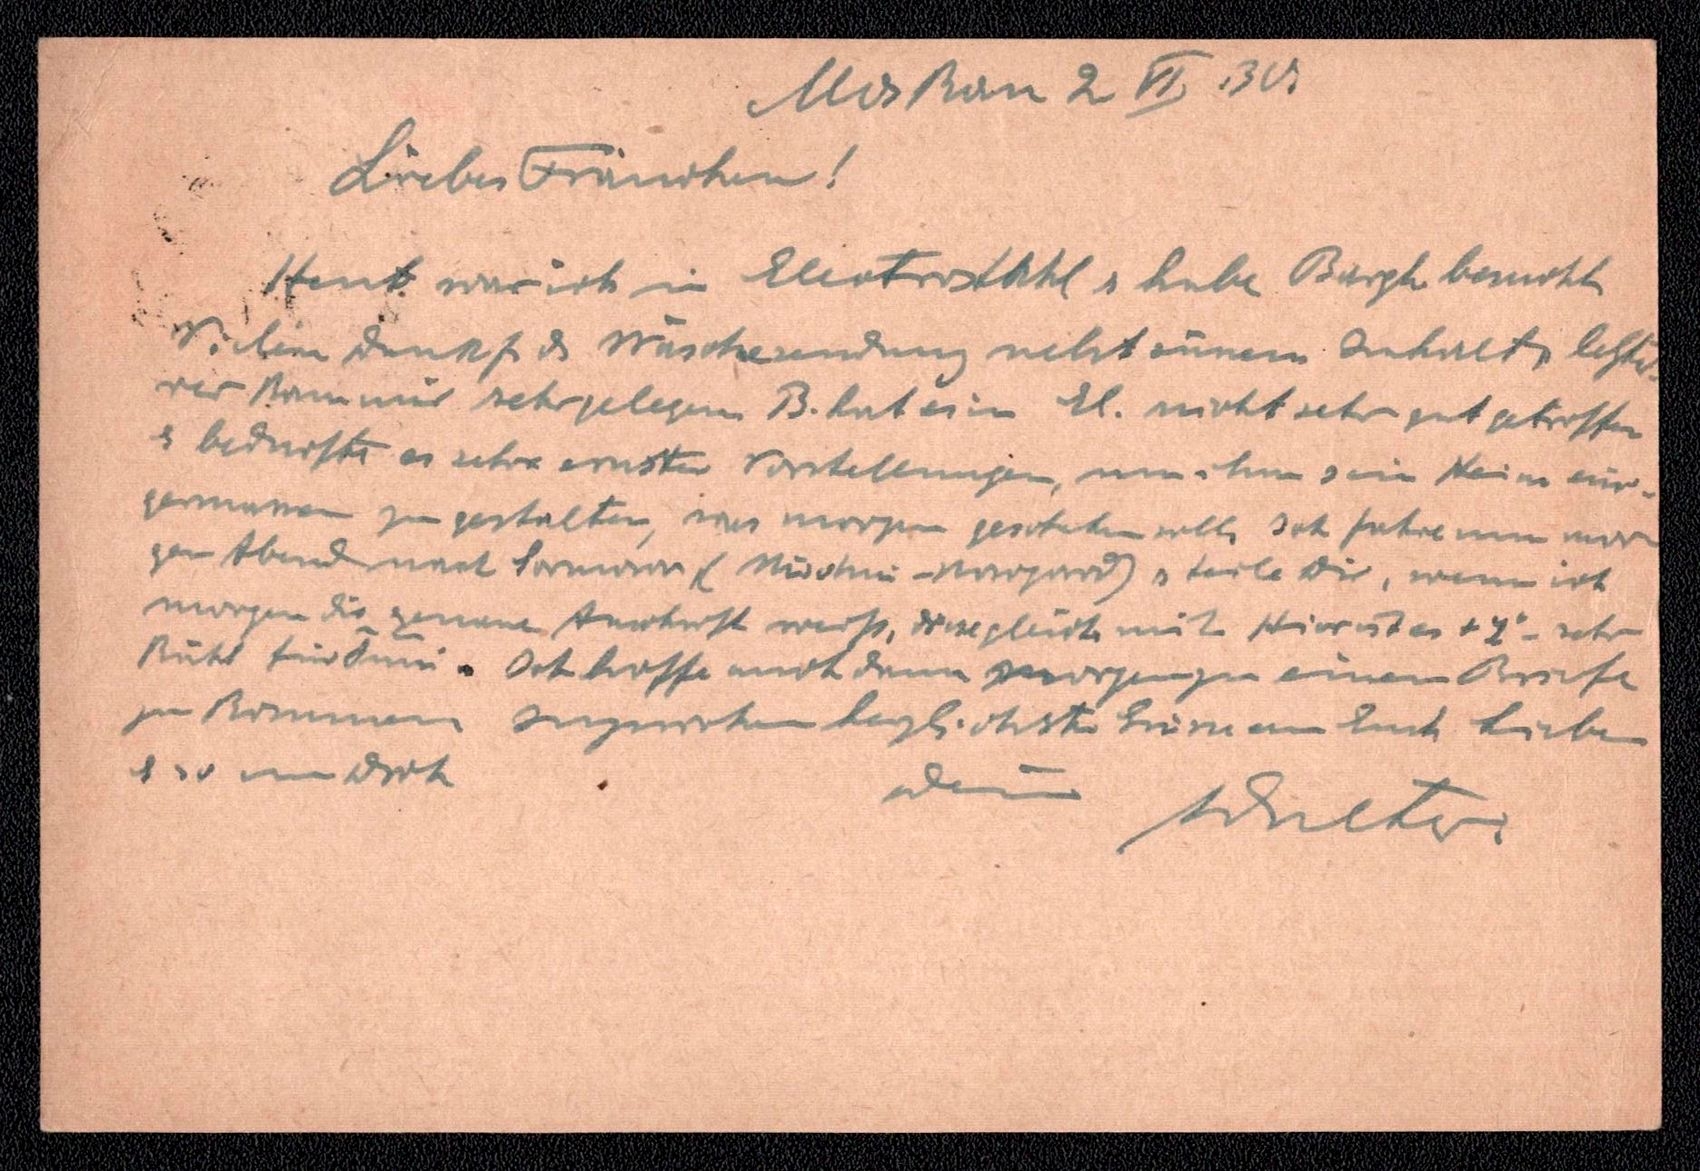 Moskau 2 VI. 30.
Liebes Frauchen!
Heut war ich in Electrostahl & habe Bargh. besucht
Vielen Dank f. d. Wäschesendung nebst einem Inhalt, letzte-
rer kam mir sehr gelegen. B. hat es in El. nicht sehr gut getroffen
& bedurfte es sehr ernster Vorstellungen, um ihm sein Heim eini-
germassen zu gestalten, was morgen geschehen soll. Ich fahre nun mor-
gen Abend nach Sormowo (Nischni-Nowgorod) & teile Dir, wenn ich
morgen die genaue Anschrift weiss, diese gleich mit. Hier ist es + 7° - sehr
kühl für Juni. Ich hoffe auch dann morgen zu einem Briefe
zu kommen. Inzwischen herzlichste Grüsse an Euch Lieben
& so an Dich
Dein Walter.